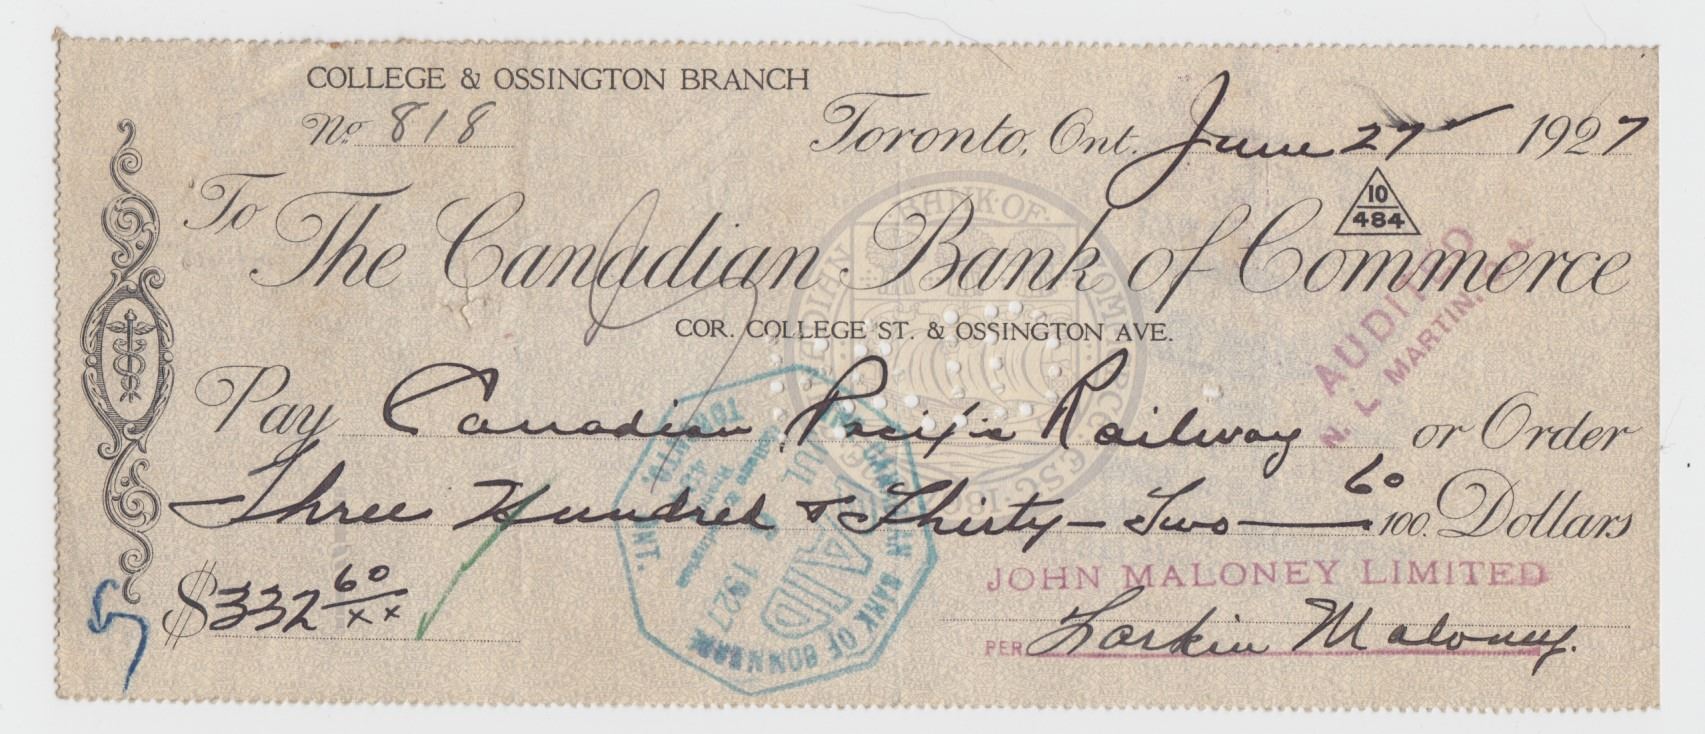 COLLEGE & OSSINGTON BRANCH
No. 818
Toronto, Ont. June 27 1927
10
484
To The Canadian Bank of Commerce
COR. COLLEGE ST. & OSSINGTON AVE.
AUDITED
N. L. MARTIN.
Pay Canadian Pacific Railway or Order
Three Hundred & Thirty-Two 60/100. Dollars
$332 60/xx
JOHN MALONEY LIMITED
PER Larkin Maloney.
PAID
1927
BANK OF